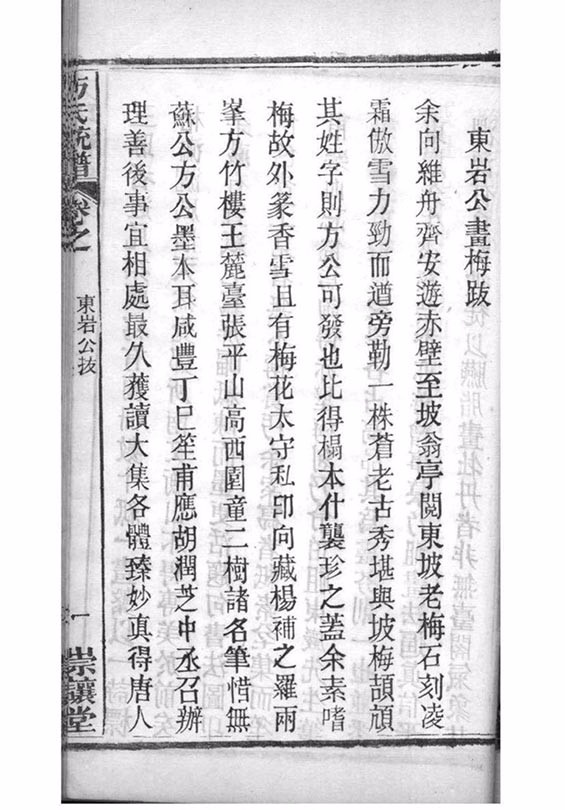 東岩公畫梅跋
余向維舟齊安遊赤壁至坡翁亭閱東坡老梅石刻凌
霜傲雪力勁而遒旁勒一株蒼老古秀堪與坡梅頡頏
其姓字則方公可發也比得榻本什襲珍之蓋余素嗜
梅故外篆香雪且有梅花太守私印向藏楊補之羅兩
峯方竹樓王麓臺張平山高西園童二樹諸名筆惜無
蘇公方公墨本耳咸豐丁巳笙甫應胡潤芝中丞召辦
理善後事宜相處最久獲讀大集各體臻妙真得唐人
方氏統譜
卷之
東岩公跋
一
崇讓堂